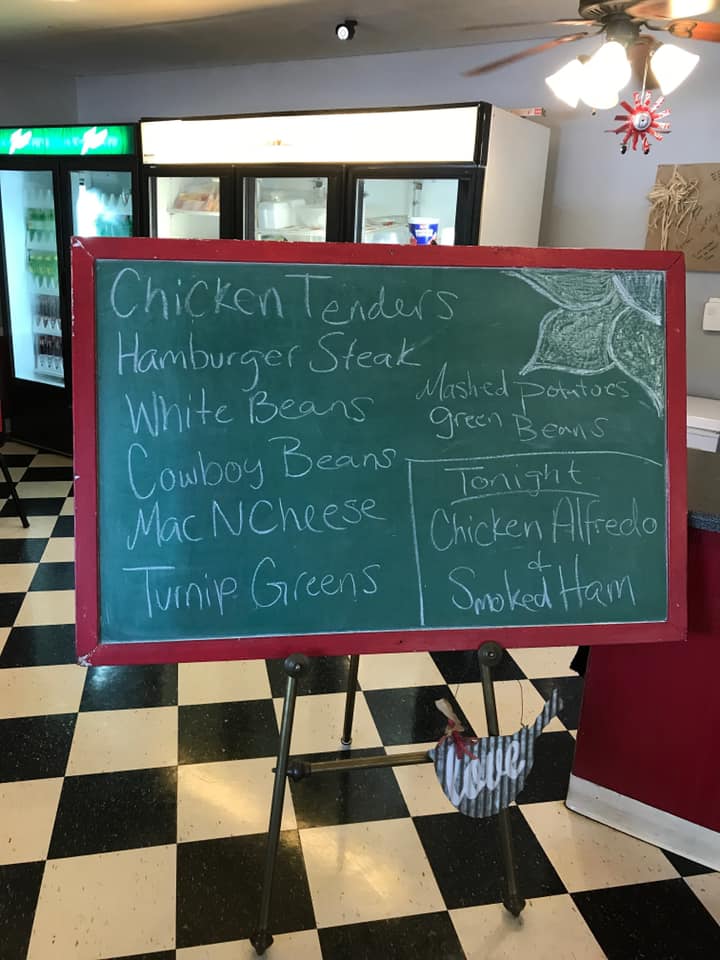 Chicken Tenders
Hamburger Steak
White Beans
Cowboy Beans
Mac N Cheese
Turnip Greens
Mashed potatoes
green Beans
Tonight
Chicken Alfredo
&
Smoked Ham
love